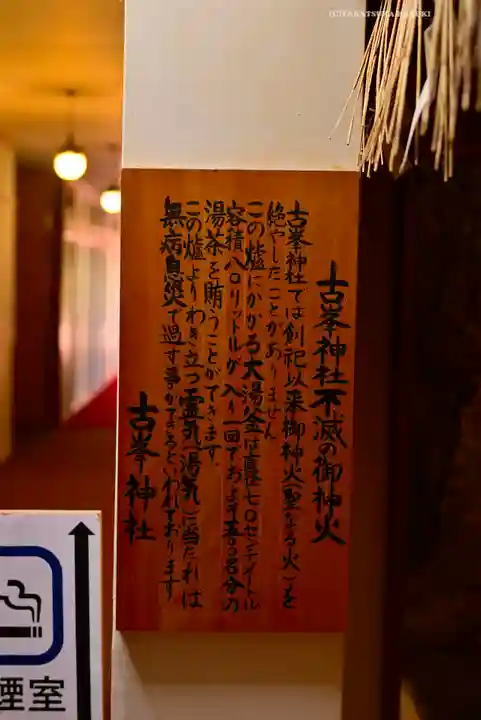 古峯神社不滅の御神火
古峯神社では創祀以来御神火(聖なる火)を
絶やしたことがありません
この爐にかかる大湯釜は直径七〇センチメートル
容積八〇リットルが入り一回でおよそ五百名分の
湯茶を賄うことができます
この爐よりわき立つ霊気(湯気)に当たれば
無病息災で過す事ができるといわれております
古峯神社
煙室